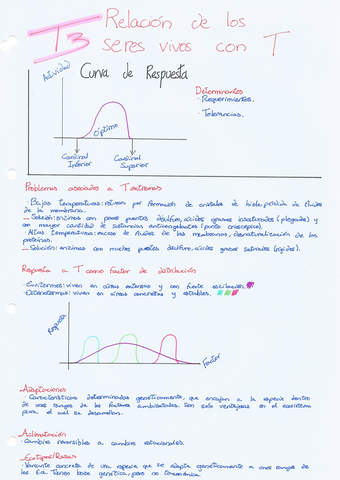 T3 Relación de los
seres vivos con T
Actividad
Curva de Respuesta
Determinantes
· Requerimientos.
· Tolerancias.
Óptimo
Cardinal
Inferior
Cardinal
Superior
Problemas asociados a T extremas
· Bajas temperaturas: rotura por formación de cristales de hielo, pérdida de fluidez
de la membrana.
→ Solución: enzimas con pocos puentes disulfuro, ácidos grasos insaturados (plegados) y
con mayor cantidad de sustancias anticongelantes (punto crioscópico).
· Altas temperaturas: exceso de fluidez de las membranas, desnaturalización de las
proteínas.
→ Solución: enzimas con muchos puentes disulfuro, ácidos grasos saturados (rígidos).
Respuesta a T como factor de distribución
· Euritermos: viven en áreas extensas y con fuerte oscilación.
· Estenotermos: viven en áreas concretas y estables.
Respuesta
Factor
Adaptaciones
· Características determinadas genéticamente, que encajan a la especie dentro
de unos rangos de los factores ambientales. Son solo ventajosas en el ecosistema
para el cual se desarrollan.
Aclimatación
· Cambios reversibles a cambios estacionales.
Ecotipos/Razas
· Variante concreta de una especie que se adapta genéticamente a unos rangos de
los f.a. Tienen base genética, pero no taxonómica.